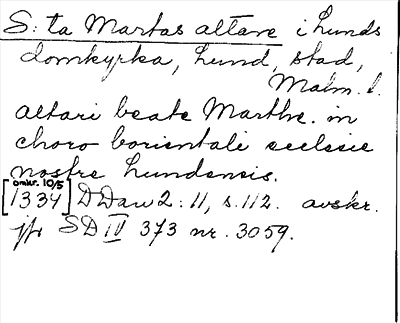 S:ta Martas altare i Lunds
domkyrka, Lund, stad,
Malm. l.
altari beate Marthe. in
choro borientali ecclesie
nostre Lundensis.
omkr. 10/5
[1334] DDan 2:11, s.112. avskr.
jfr SD IV 373 nr. 3059.